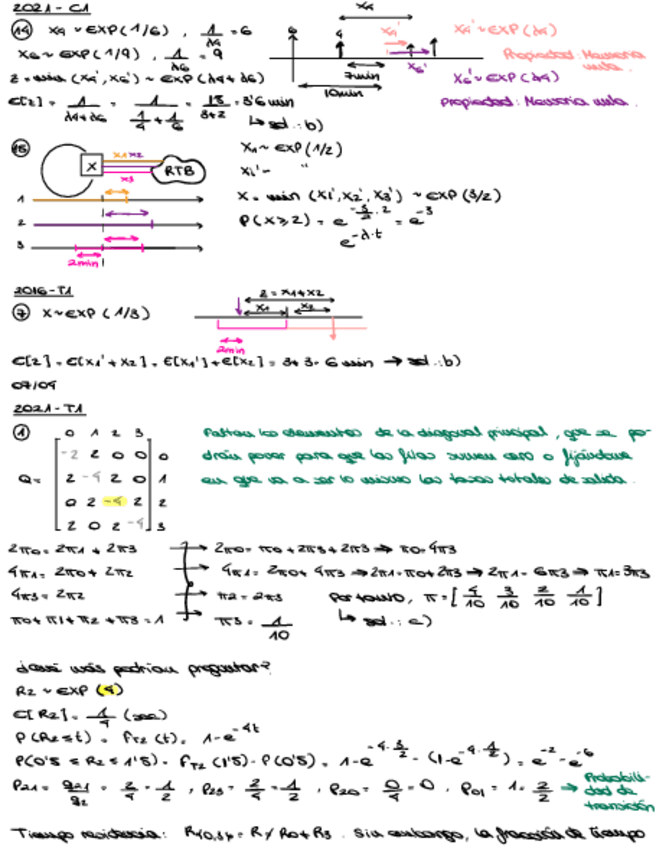 2021-C1
14 X4 ~ EXP(1/6), 1/λ4 = 6
X6 ~ EXP(1/9), 1/λ6 = 9
Z = min (X4', X6') ~ EXP(λ4+λ6)
E[Z] = 1/(λ4+λ6) = = 18/(3+2) = 3'6 min
↳ sol.: b)
X4
6 4
X4'
X6'
7min
10min
X4' ~ EXP(λ4)
Propiedad: Memoria nula.
X6' ~ EXP(λ4)
Propiedad: Memoria nula.
15
X X1 X2 X3 RTB
1
2
3
2min
X1 ~ EXP(1/2)
X2' ~ "
X = min (X1', X2', X3') ~ EXP(3/2)
P(X ≥ 2) = e^(-3/2 · 2) = e^-3
e^-λ·t
2016-T1
7 X ~ EXP(1/3)
Z = X1 + X2
X1 X2
2min
E[Z] = E[X1' + X2] = E[X1'] + E[X2] = 3 + 3 = 6 min → sol.: b)
07/04
2021-T1
1
0 1 2 3
-2 2 0 0 0
Q = 2 -4 2 0 1
0 2 -4 2 2
2 0 2 -4 3
Faltan los elementos de la diagonal principal, que se po-
drán poner para que las filas sumen cero o fijándome
en que va a ser lo mismo las tasas totales de salida.
2π0 = 2π1 + 2π3 → 2π0 = π0 + 2π3 + 2π3 ⇒ π0 = 4π3
4π1 = 2π0 + 2π2 → 4π1 = 2π0 + 4π3 ⇒ 2π1 = π0 + 2π3 ⇒ 2π1 = 6π3 ⇒ π1 = 3π3
4π3 = 2π2 → π2 = 2π3 Por tanto, π = [4/10 3/10 2/10 1/10]
π0 + π1 + π2 + π3 = 1 → π3 = 1/10 ↳ sol.: c)
¿Qué más podrían preguntar?
R2 ~ EXP(4)
E[R2] = 1/4 (sec)
P(R2 ≤ t) = FT2(t) = 1 - e^-4t
P(0'5 ≤ R2 ≤ 1'5) = FT2(1'5) - P(0'5) = 1 - e^(-4·3/2) - (1 - e^(-4·1/2)) = e^-2 - e^-6
P21 = q21/q2 = 2/4 = 1/2, P23 = 2/4 = 1/2, P20 = 0/4 = 0, P01 = 1 = 2/2 → Probabili-
dad de
transición
Tiempo residencia: R{0,3} = R ≠ R0 + R3. Sin embargo, la fracción de tiempo